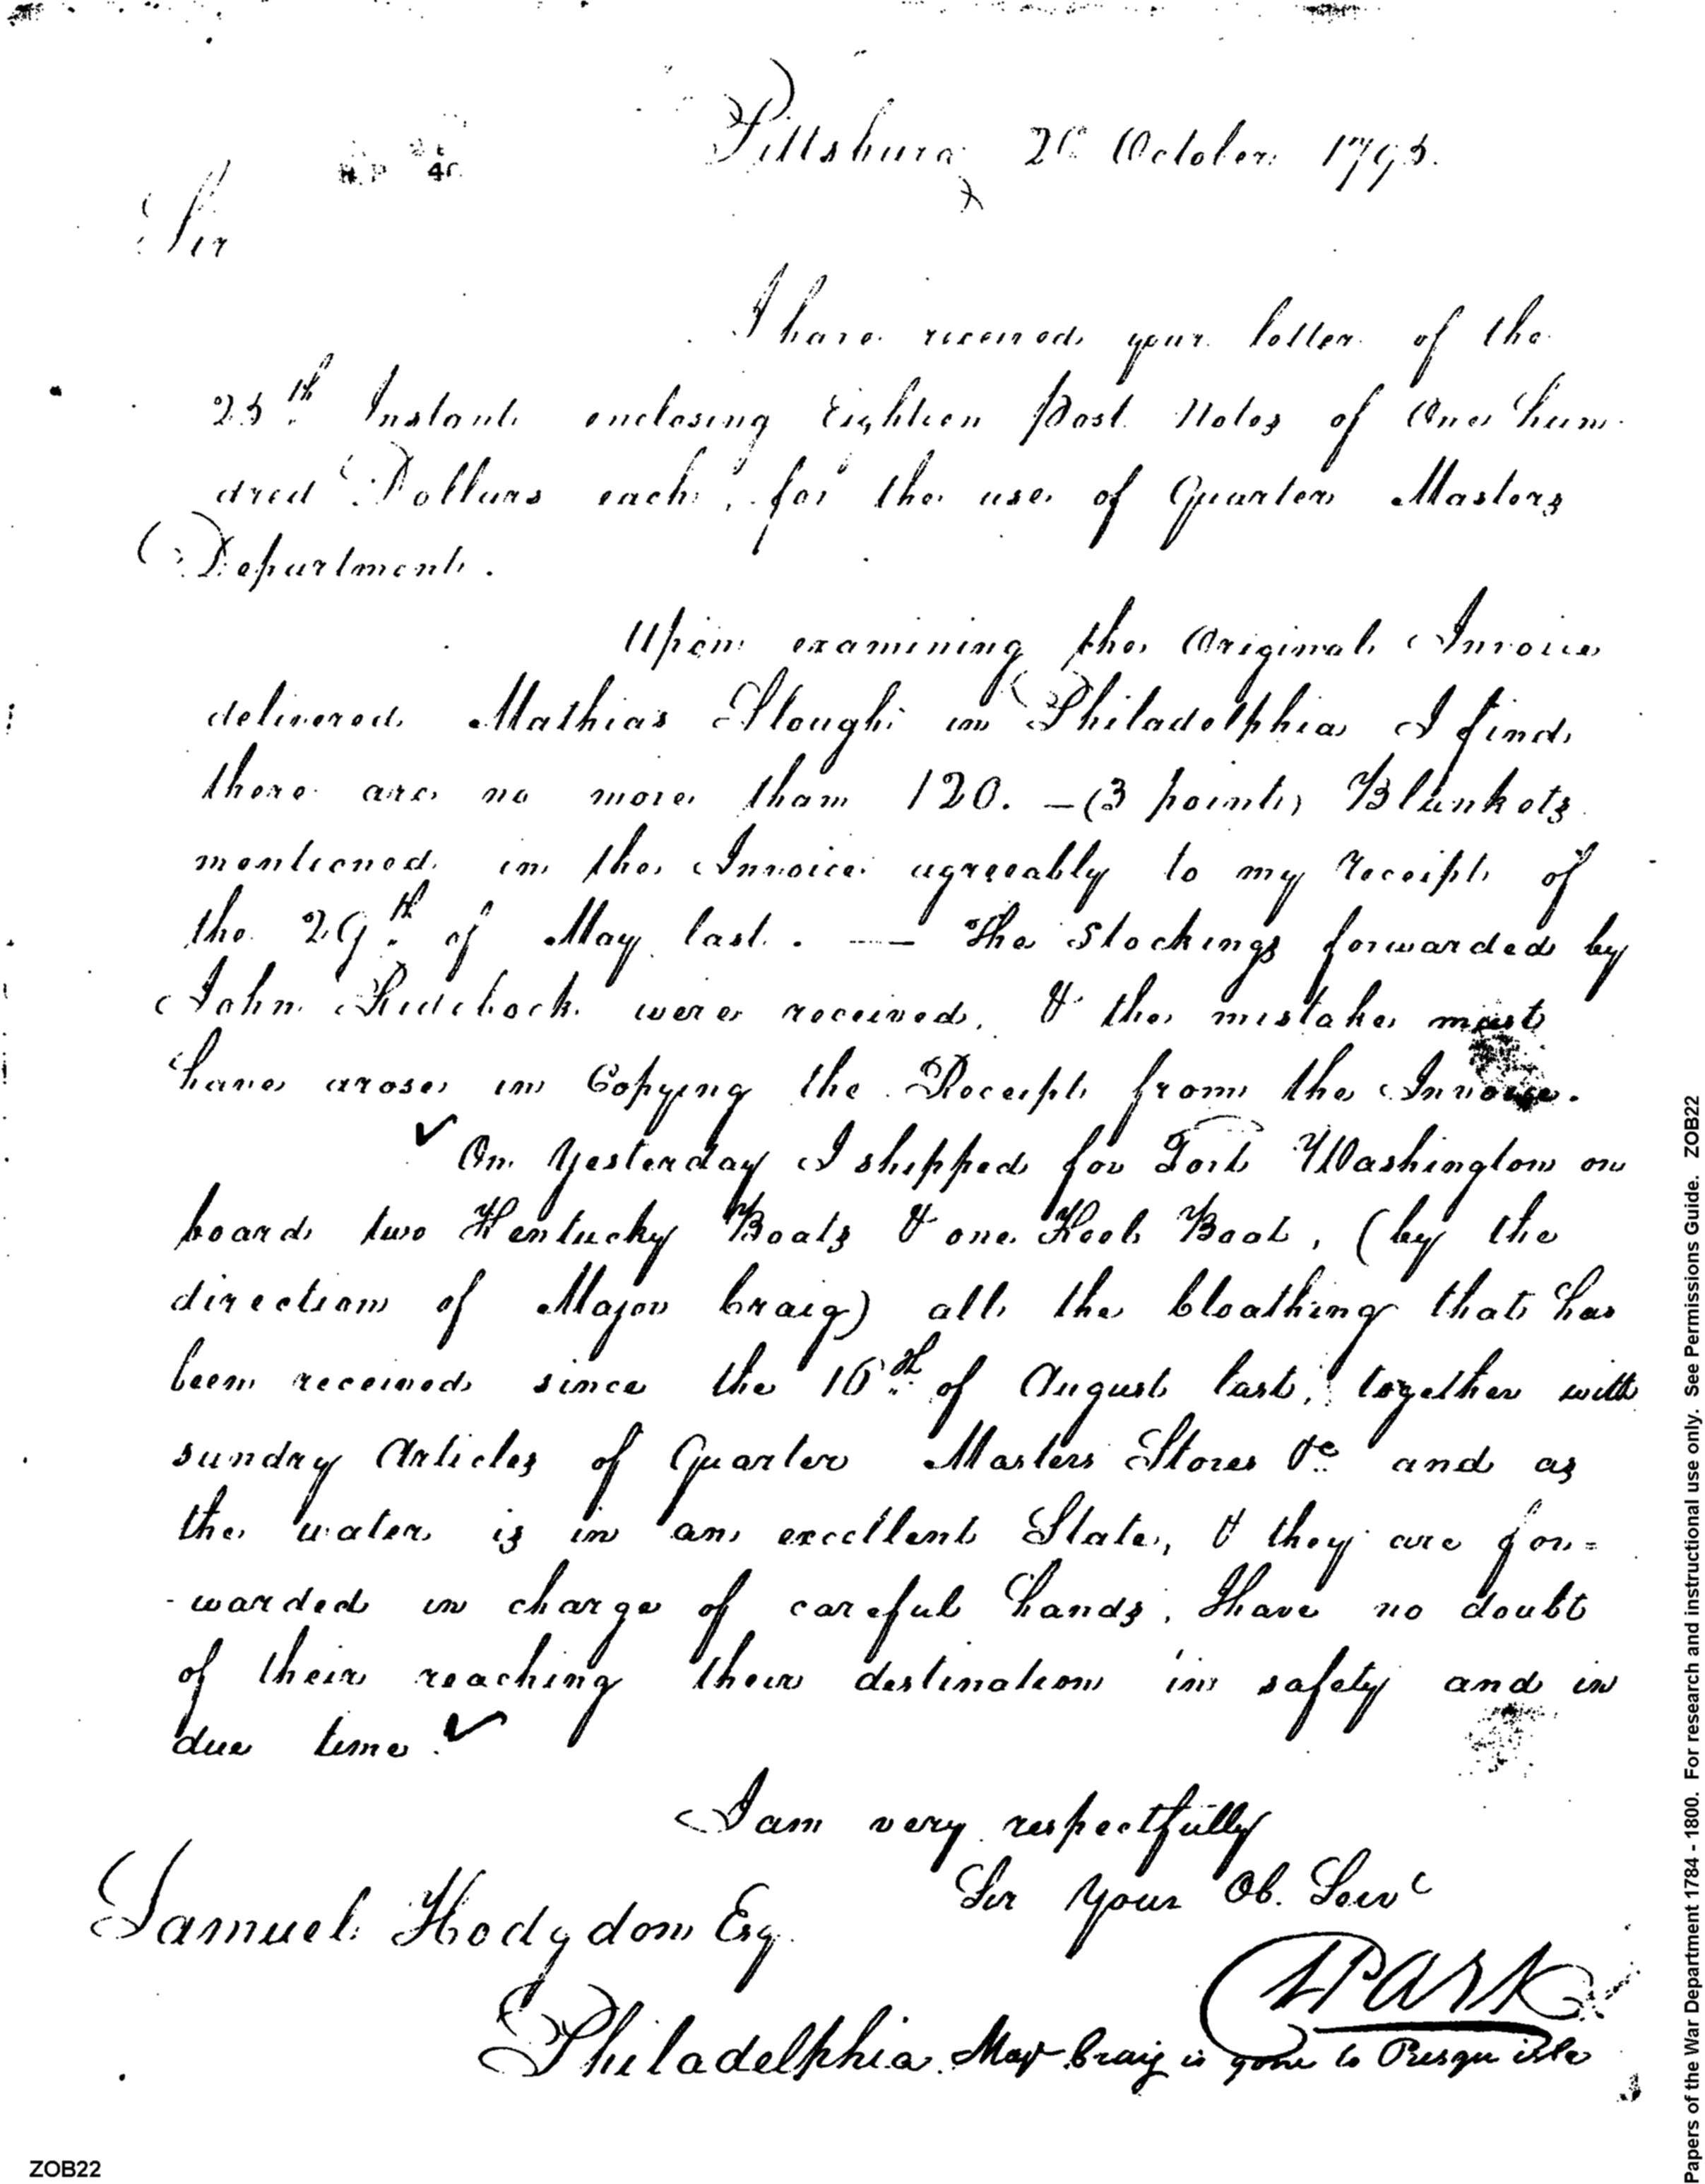 Pittsburg October 1795.
Sir
I have received your letter of the
25th Instant enclosing Eighteen Post Notes of One hun
dred Dollars each, for the use of Quarter Masters
Department.
Upon examining the Original Invoice
delivered Mathias Slough in Philadelphia I find
there are no more than 120. — (3 point) Blankets
mentioned in the Invoice agreeably to my receipt of
the 29th of May last. — The Stockings forwarded by
John were received, & the mistake must
have arose in Copying the Receipt from the Invoice.
On Yesterday I shipped for Fort Washington on
board two Kentucky Boats & one Keel Boat, (by the
direction of Major Craig) all the Cloathing that has
been received since the 16th of August last, together with
sundry Articles of Quarter Masters Stores &c and as
the water is in an excellent State, & they are for=
-warded in charge of careful hands, I have no doubt
of their reaching their destination in safety and in
due time.
I am very respectfully
Sir Your Ob. Servt
Samuel Hodgdon Esq.
Philadelphia. Majr Craig is gone to Presqu isle
ZOB22
Papers of the War Department 1784 - 1800. For research and instructional use only. See Permissions Guide. ZOB22